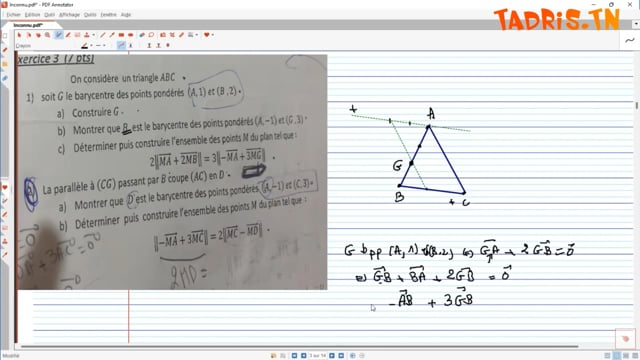 Inconnu.pdf* - PDF Annotator
TADRIS.TN
Inconnu.pdf*
Crayon
Exercice 3 (7 pts)
On considère un triangle ABC .
1) soit G le barycentre des points pondérés (A,1) et (B,2) .
a) Construire G .
b) Montrer que B est le barycentre des points pondérés (A,−1) et (G,3) .
c) Déterminer puis construire l'ensemble des points M du plan tel que :
2‖MA⃗ + 2MB⃗‖ = 3‖−MA⃗ + 3MG⃗‖ .
La parallèle à (CG) passant par B coupe (AC) en D .
a) Montrer que D est le barycentre des points pondérés (A,−1) et (C,3) .
b) Déterminer puis construire l'ensemble des points M du plan tel que :
‖−MA⃗ + 3MC⃗‖ = 2‖MC⃗ − MD⃗‖ .
+ 3AC⃗ = 0⃗
2MD =
A
G
B
C
G bpp (A, 1) (B,2) ⇔ GA⃗ + 2GB⃗ = 0⃗
⇔ GB⃗ + BA⃗ + 2GB⃗ = 0⃗
−AB⃗ + 3GB⃗
3 sur 14